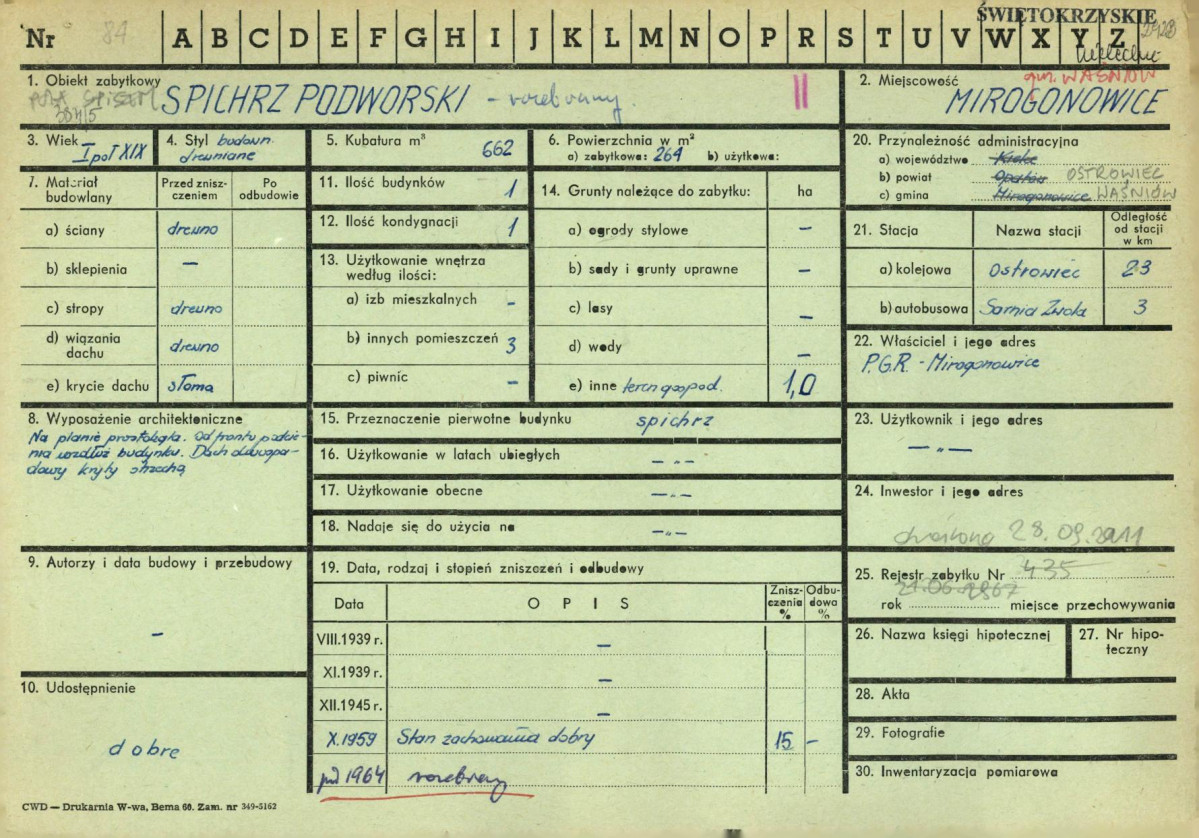 ŚWIĘTOKRZYSKIE
Nr 84 A B C D E F G H I J K L M N O P R S T U V W X Y Z
1. Obiekt zabytkowy
SPICHRZ PODWORSKI - rozebrany
II
2. Miejscowość
gm. WAŚNIÓW
MIROGONOWICE
3. Wiek
I poł XIX
4. Styl budown.
drewniane
5. Kubatura m³
662
6. Powierzchnia w m²
a) zabytkowa: 264 b) użytkowa:
20. Przynależność administracyjna
a) województwo Kielce
b) powiat Opatów OSTROWIEC
c) gmina Mirogonowice WAŚNIÓW
7. Materiał
budowlany
Przed znisz-
czeniem
Po
odbudowie
a) ściany drewno
b) sklepienia —
c) stropy drewno
d) wiązania
dachu drewno
e) krycie dachu słoma
11. Ilość budynków 1
12. Ilość kondygnacji 1
13. Użytkowanie wnętrza
według ilości:
a) izb mieszkalnych -
b) innych pomieszczeń 3
c) piwnic -
14. Grunty należące do zabytku: ha
a) ogrody stylowe -
b) sady i grunty uprawne -
c) lasy -
d) wody -
e) inne teren gospod. 1,0
21. Stacja Nazwa stacji
Odległość
od stacji
w km
a) kolejowa Ostrowiec 23
b) autobusowa Sarnia Zwola 3
22. Właściciel i jego adres
P.G.R. - Mirogonowice
8. Wyposażenie architektoniczne
Na planie prostokąta. Od frontu podcie-
nia wzdłuż budynku. Dach dwuspa-
dowy kryty strzechą
15. Przeznaczenie pierwotne budynku spichrz
16. Użytkowanie w latach ubiegłych — „ —
17. Użytkowanie obecne — „ —
18. Nadaje się do użycia na — „ —
23. Użytkownik i jego adres
— „ —
24. Inwestor i jego adres
28.09.2011
9. Autorzy i data budowy i przebudowy
—
19. Data, rodzaj i stopień zniszczeń i odbudowy
Data O P I S
Znisz-
czenia
%
Odbu-
dowa
%
VIII.1939 r. —
XI.1939 r. —
XII.1945 r. —
X.1959 Stan zachowania dobry 15 -
1964 rozebrany
25. Rejestr zabytku Nr 435
21.06.1967
rok miejsce przechowywania
26. Nazwa księgi hipotecznej
27. Nr hipo-
teczny
10. Udostępnienie
dobre
28. Akta
29. Fotografie
30. Inwentaryzacja pomiarowa
CWD — Drukarnia W-wa, Bema 60. Zam. nr 349-5162